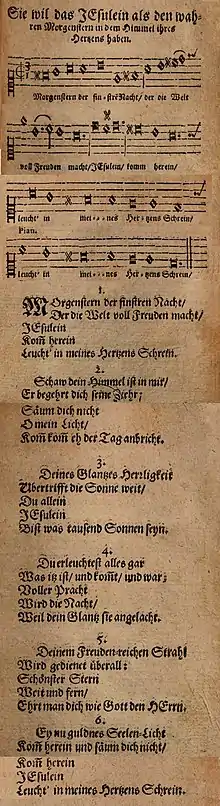 Sie wil das JEsulein als den wah-
ren Morgenstern in dem Himmel ihres
Hertzens haben.
Morgenstern der fin-strẽ Nacht/ der die Welt
voll Freuden macht/ JEsulein/ kom̃ herein/
leucht' in mei-nes Her-tzens Schrein/
Pian.
leucht' in mei-nes Her-tzens Schrein/
1.
MOrgenstern der finstren Nacht/
Der die Welt voll Freuden macht/
JEsulein
Kom̃ herein
Leucht' in meines Hertzens Schrein.
2.
Schaw dein Himmel ist in mir/
Er begehrt dich seine Ziehr;
Säum dich nicht
O mein Licht/
Kom̃ kom̃ eh der Tag anbricht.
3.
Deines Glantzes Herzligkeit
Ubertrifft die Sonne weit/
Du allein
JEsulein
Bist was tausend Sonnen seyn.
4.
Du erleuchtest alles gar
Was itz ist/ und kom̃t/ und war;
Voller Pracht
Wird die Nacht/
Weil dein Glantz sie angelacht.
5.
Deinem Freuden-reichen Strahl
Wird gedienet überall:
Schönster Stern
Weit und fern/
Ehrt man dich wie Gott den HErrn.
6.
Ey nu guldnes Seelen-Licht
Kom̃ herein und säum dich nicht/
Kom̃ herein
JEsulein
Leucht' in meines Hertzens Schrein.